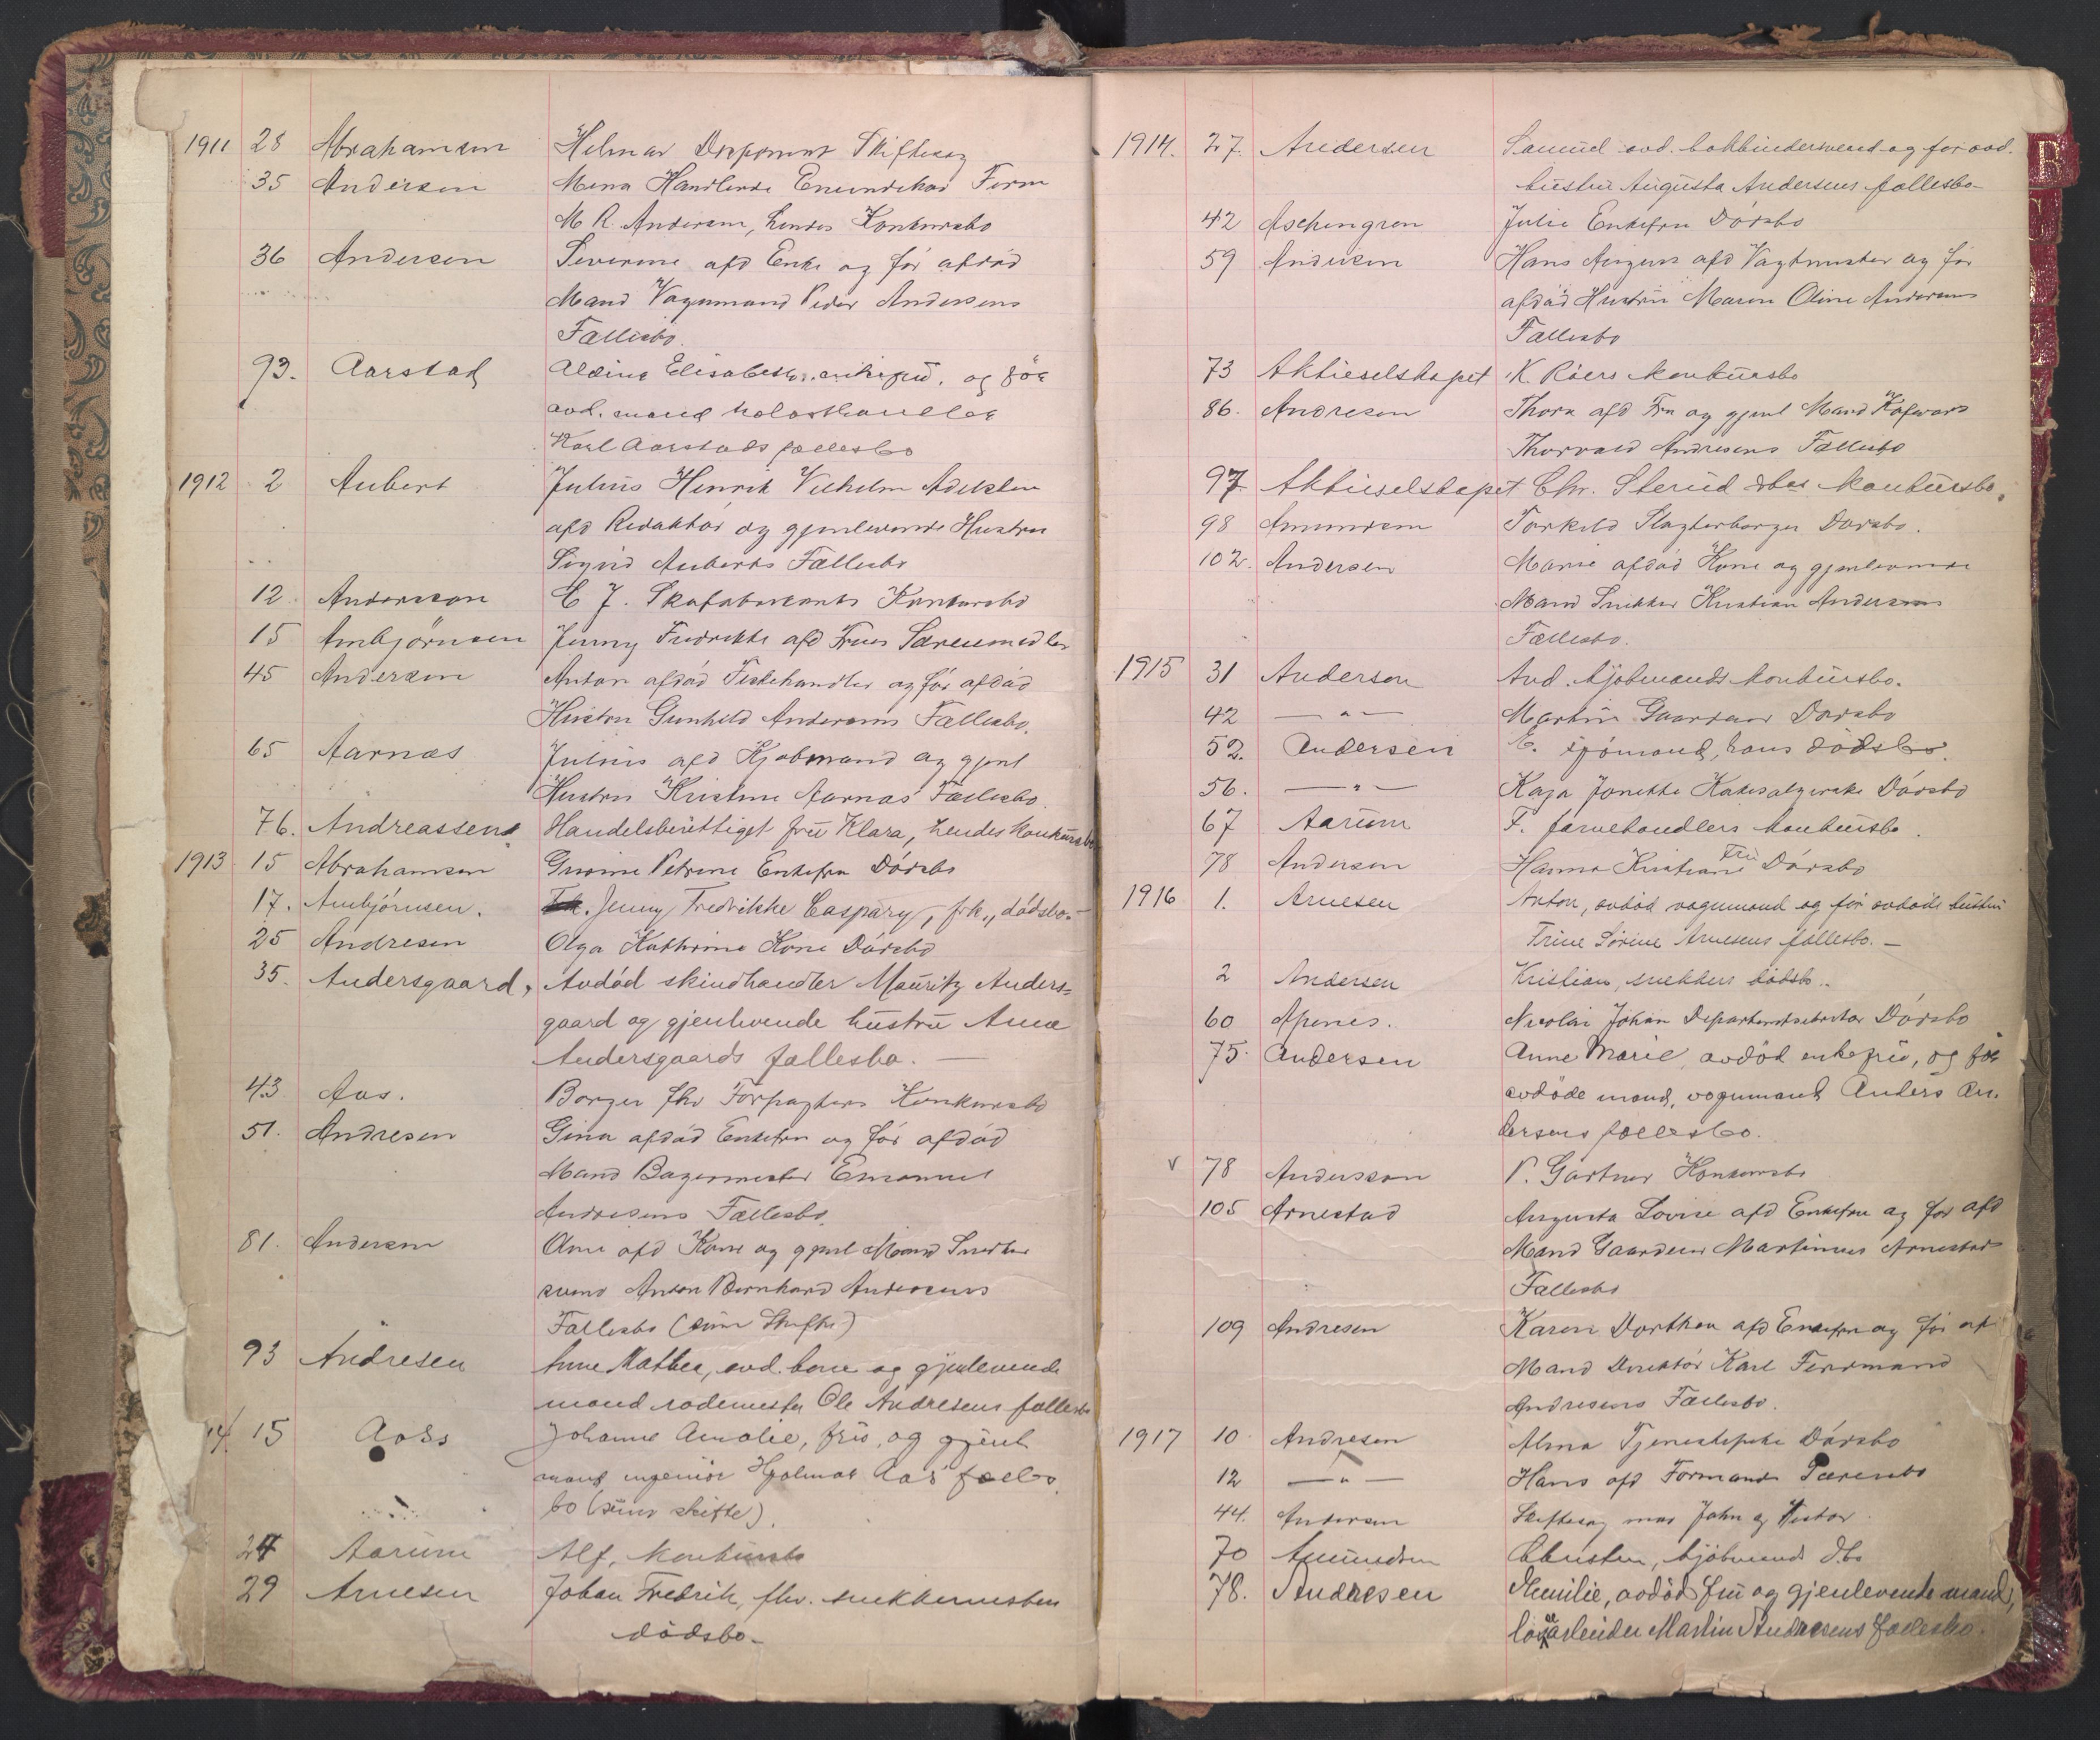 1911 28 Abrahamsen Helmar Skiftesag
35 Andersen Mina Handlende Firm
M R. Andersen, hendes Konkursbo
36 Andersen Severine afd Enke og for afdöd
Mand Vognmand Peder Andersens
Fællesbo.
93. Aarstad Aldine Elisabeth enkefru, og för
avd. mand
Karl Aarstads fællesbo
1912 2 Aubert Julius Henrik Vilhelm
afd Redaktör og gjenlevende Hustru
Sigrid Auberts Fællesbo
12 Andersson C J. Konkursbo
15 Ambjörnsen Jenny Fredrikke afd Frues
45 Andersen Anton afdöd Fiskehandler og för afdöd
Hustru Gunhild Andersens Fællesbo.
65 Aarnæs Julius afd Kjøbmand og gjenl
Hustru Kristine Aarnæs Fællesbo.
76. Andreassen Handelsberettiget frü Klara, hendes konkursbo
1913 15 Abrahamsen Petrine Enkefru Dödsbo
17. Ambjörnsen. Jenny Fredrikke Caspary, frk., dødsbo.-
25 Andresen Olga Kathrine Kone Dödsbo
35. Andersgaard, Avdöd skindhandler Mauritz Anders=
gaard og gjenlevende hustru Anna
Andersgaards fællesbo. —
43 Aas. Borger fhv Forpagters Konkursbo
51. Andresen Gina afdöd Enkefru og för afdöd
Mand Bagermester Emanuel
Andresens Fællesbo
81. Andersen afd Kone og gjenl Mand Snedker
svend Anton Bernhard Andersens
Fællesbo
93 Andresen Anne Mathea, avd. kone og gjenlevende
mand rodemester Ole Andresens fællesbo
14 15 Aass Johanne Amalie, frü, og gjenl
mand ingeniör Hjalmar Aas' fælles
bo
24 Aarum Alf, konkursbo
29 Arnesen Johan Fredrik, fhv. snekkermesters
dödsbo-
1914. 27. Andersen Samuel avd. bokbindersvend og for avd.
hustru Augusta Andersens fællesbo-
42 Aschengren Julie Enkefru Dödsbo
59 Andersen Hans August afd Vagtmester og för
afdöd Hustru Maren Oline Andersens
Fællesbo
73 Aktieselskapet K. Röers konkursbo
86. Andresen Thora afd Fru og gjenl Mand
Thorvald Andresens Fællesbo
97 Aktieselskapet Chr. Sterud konkursbo.
98 Amundsen Torkild Slagterborger Dødsbo.
102. Andersen Marie afdöd Kone og gjenlevende
Mand Snekker Kristian Andersens
Fællesbo.
1915 31 Anderson And. kjöbmands konkursbo.
42 — " — Martin Gaardeier Dødsbo
52. Andersen E. sjömand, hans dödsbo.
56. — " — Kaja Jonette Dödsbo
67 Aarum F. farvehandlers konkursbo.
78 Andersen Hanna Kristiane Frü Dödsbo
1916 1. Arnesen Anton, avdöd vognmand og för avdöde hustru
Trine Sörine Arnesens fællesbo. —
2 Andersen Kristian, snekkers dödsbo.
60 Apenes. Nicolai Johan Dödsbo
75. Andersen Anne Marie, avdöd enkefrü, og för
avdöde mand, vognmand Anders An.
dersens fællesbo.
v 78 Andersson P. Gartner Konkursbo
105 Arnestad Augusta Lovise afd Enkefru og for afd
Mand Gaardeier Martinius Arnestad
Fællesbo
109 Andresen Karen Dorthea afd Enkefru og för af
Mand Direktör Karl Ferdinand
Andresens Fællesbo.
1917 10 Andresen Alma Tjenestepike Dödsbo
12 — " — Hans afd Formand Særesbo
44. Andersen Skiftesag mod John og Victor.
70 Amundsen Christen, kjöbmands d.bo
78. Andresen Emilie, avdöd frü og gjenlevende mand,
Martin Andresens fællesbo.